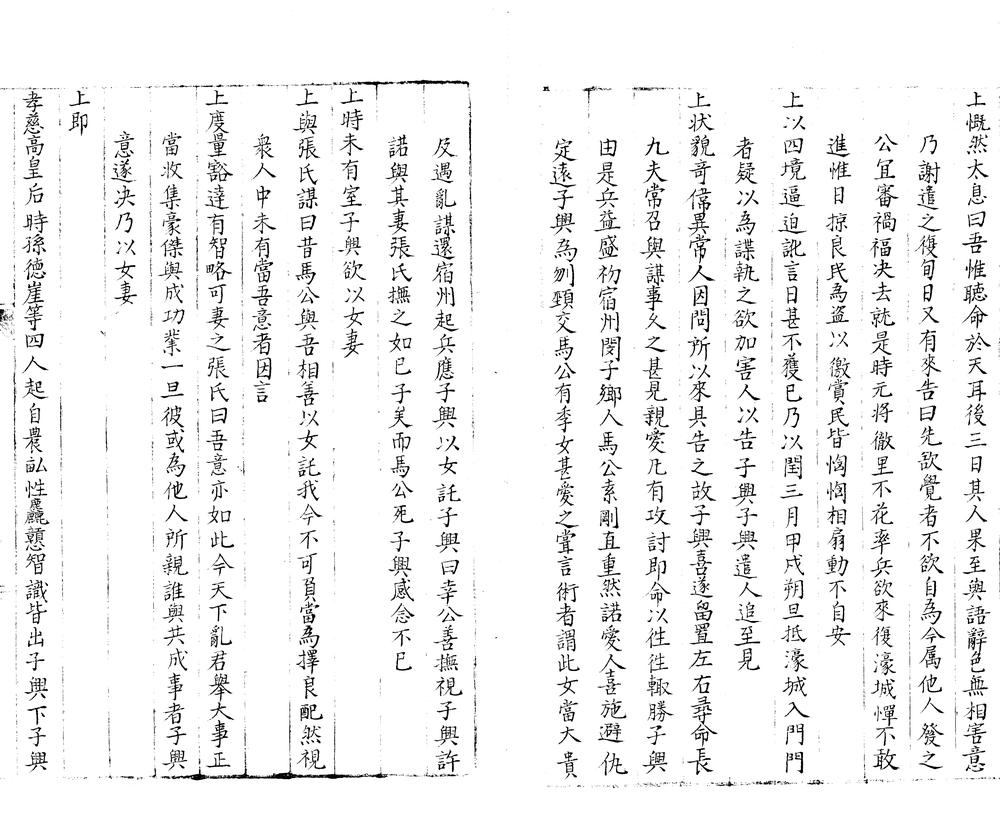 上慨然太息曰吾惟聽命於天耳後三日其人果至與語辭色無相害意
乃謝遣之復旬日又有來告曰先欲覺者不欲自為今属他人發之
公冝審禍福决去就是時元将徹里不花率兵欲來復濠城憚不敢
進惟日掠良民為盗以徼賞民皆恟恟相扇動不自安
上以四境逼迫訛言日甚不獲已乃以閏三月甲戌朔旦抵濠城入門門
者疑以為諜執之欲加害人以告子興子興遣人追至見
上状貌奇偉異常人因問所以來具告之故子興喜遂留置左右尋命長
九夫常召與謀事乆之甚見親愛凡有攻討即命以徃徃輙勝子興
由是兵益盛初宿州閔子鄉人馬公素剛直重然諾愛人喜施避仇
定遠子興為刎頸交馬公有季女甚愛之嘗言術者謂此女當大貴
及遇亂謀還宿州起兵應子興以女託子興曰幸公善撫視子興許
諾與其妻張氏撫之如已子美而馬公死子興感念不已
上時未有室子興欲以女妻
上與張氏謀曰昔馬公與吾相善以女託我今不可負當為擇良配然視
衆人中未有當吾意者因言
上度量豁達有智略可妻之張氏曰吾意亦如此今天下亂君舉大事正
當收集豪傑與成功業一旦彼或為他人所親誰與共成事者子興
意遂决乃以女妻
上即
孝慈高皇后時孫德崖等四人起自農畝性麤戇智識皆出子興下子興